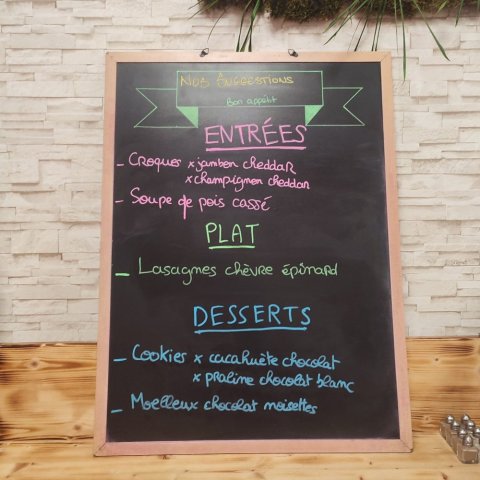 Nos Suggestions
Bon appétit
ENTRÉES
- Croques x jambon cheddar
x champignon cheddar
- Soupe de pois cassé
PLAT
- Lasagnes chèvre épinard
DESSERTS
- Cookies x cacahuète chocolat
x praline chocolat blanc
- Moelleux chocolat noisettes